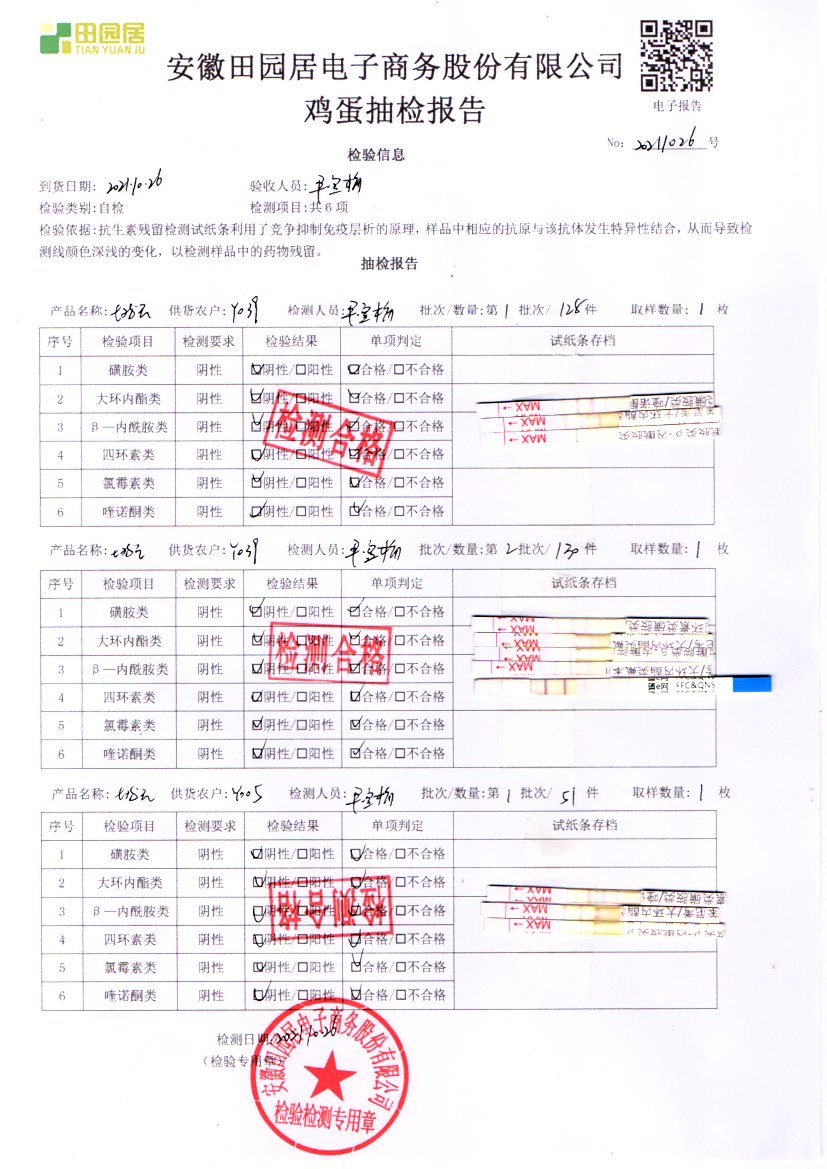 田园居
TIAN YUAN JU
安徽田园居电子商务股份有限公司
鸡蛋抽检报告
电子报告
No: 20211026 号
检验信息
到货日期: 2021.10.26 验收人员:
检验类别:自检 检测项目:共6项
检验依据:抗生素残留检测试纸条利用了竞争抑制免疫层析的原理,样品中相应的抗原与该抗体发生特异性结合,从而导致检
测线颜色深浅的变化,以检测样品中的药物残留。
抽检报告
产品名称: 供货农户:Y039 检测人员: 批次/数量:第 1 批次/ 128 件 取样数量: 1 枚
序号 检验项目 检测要求 检验结果 单项判定 试纸条存档
1 磺胺类 阴性 ☑阴性/□阳性 ☑合格/□不合格
2 大环内酯类 阴性 ☑阴性/□阳性 ☑合格/□不合格
3 β—内酰胺类 阴性 ☑阴性/□阳性 ☑合格/□不合格
4 四环素类 阴性 ☑阴性/□阳性 ☑合格/□不合格
5 氯霉素类 阴性 ☑阴性/□阳性 ☑合格/□不合格
6 喹诺酮类 阴性 ☑阴性/□阳性 ☑合格/□不合格
检测合格
MAX
MAX
MAX
产品名称: 供货农户:Y039 检测人员: 批次/数量:第 2 批次/ 130 件 取样数量: 1 枚
序号 检验项目 检测要求 检验结果 单项判定 试纸条存档
1 磺胺类 阴性 ☑阴性/□阳性 ☑合格/□不合格
2 大环内酯类 阴性 ☑阴性/□阳性 ☑合格/□不合格
3 β—内酰胺类 阴性 ☑阴性/□阳性 ☑合格/□不合格
4 四环素类 阴性 ☑阴性/□阳性 ☑合格/□不合格
5 氯霉素类 阴性 ☑阴性/□阳性 ☑合格/□不合格
6 喹诺酮类 阴性 ☑阴性/□阳性 ☑合格/□不合格
检测合格
MAX
MAX
MAX
MAX
FFC&QNS
产品名称: 供货农户:Y005 检测人员: 批次/数量:第 1 批次/ 51 件 取样数量: 1 枚
序号 检验项目 检测要求 检验结果 单项判定 试纸条存档
1 磺胺类 阴性 ☑阴性/□阳性 ☑合格/□不合格
2 大环内酯类 阴性 ☑阴性/□阳性 ☑合格/□不合格
3 β—内酰胺类 阴性 ☑阴性/□阳性 ☑合格/□不合格
4 四环素类 阴性 ☑阴性/□阳性 ☑合格/□不合格
5 氯霉素类 阴性 ☑阴性/□阳性 ☑合格/□不合格
6 喹诺酮类 阴性 ☑阴性/□阳性 ☑合格/□不合格
检测合格
MAX
MAX
MAX
检测日期: 2021.10.26
(检验专用章)
安徽田园居电子商务股份有限公司
检验检测专用章